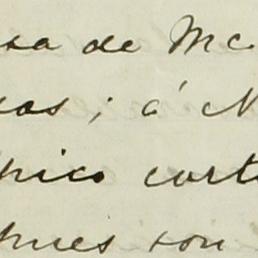 sa de Mc
sos; á N
pico corte
pues son